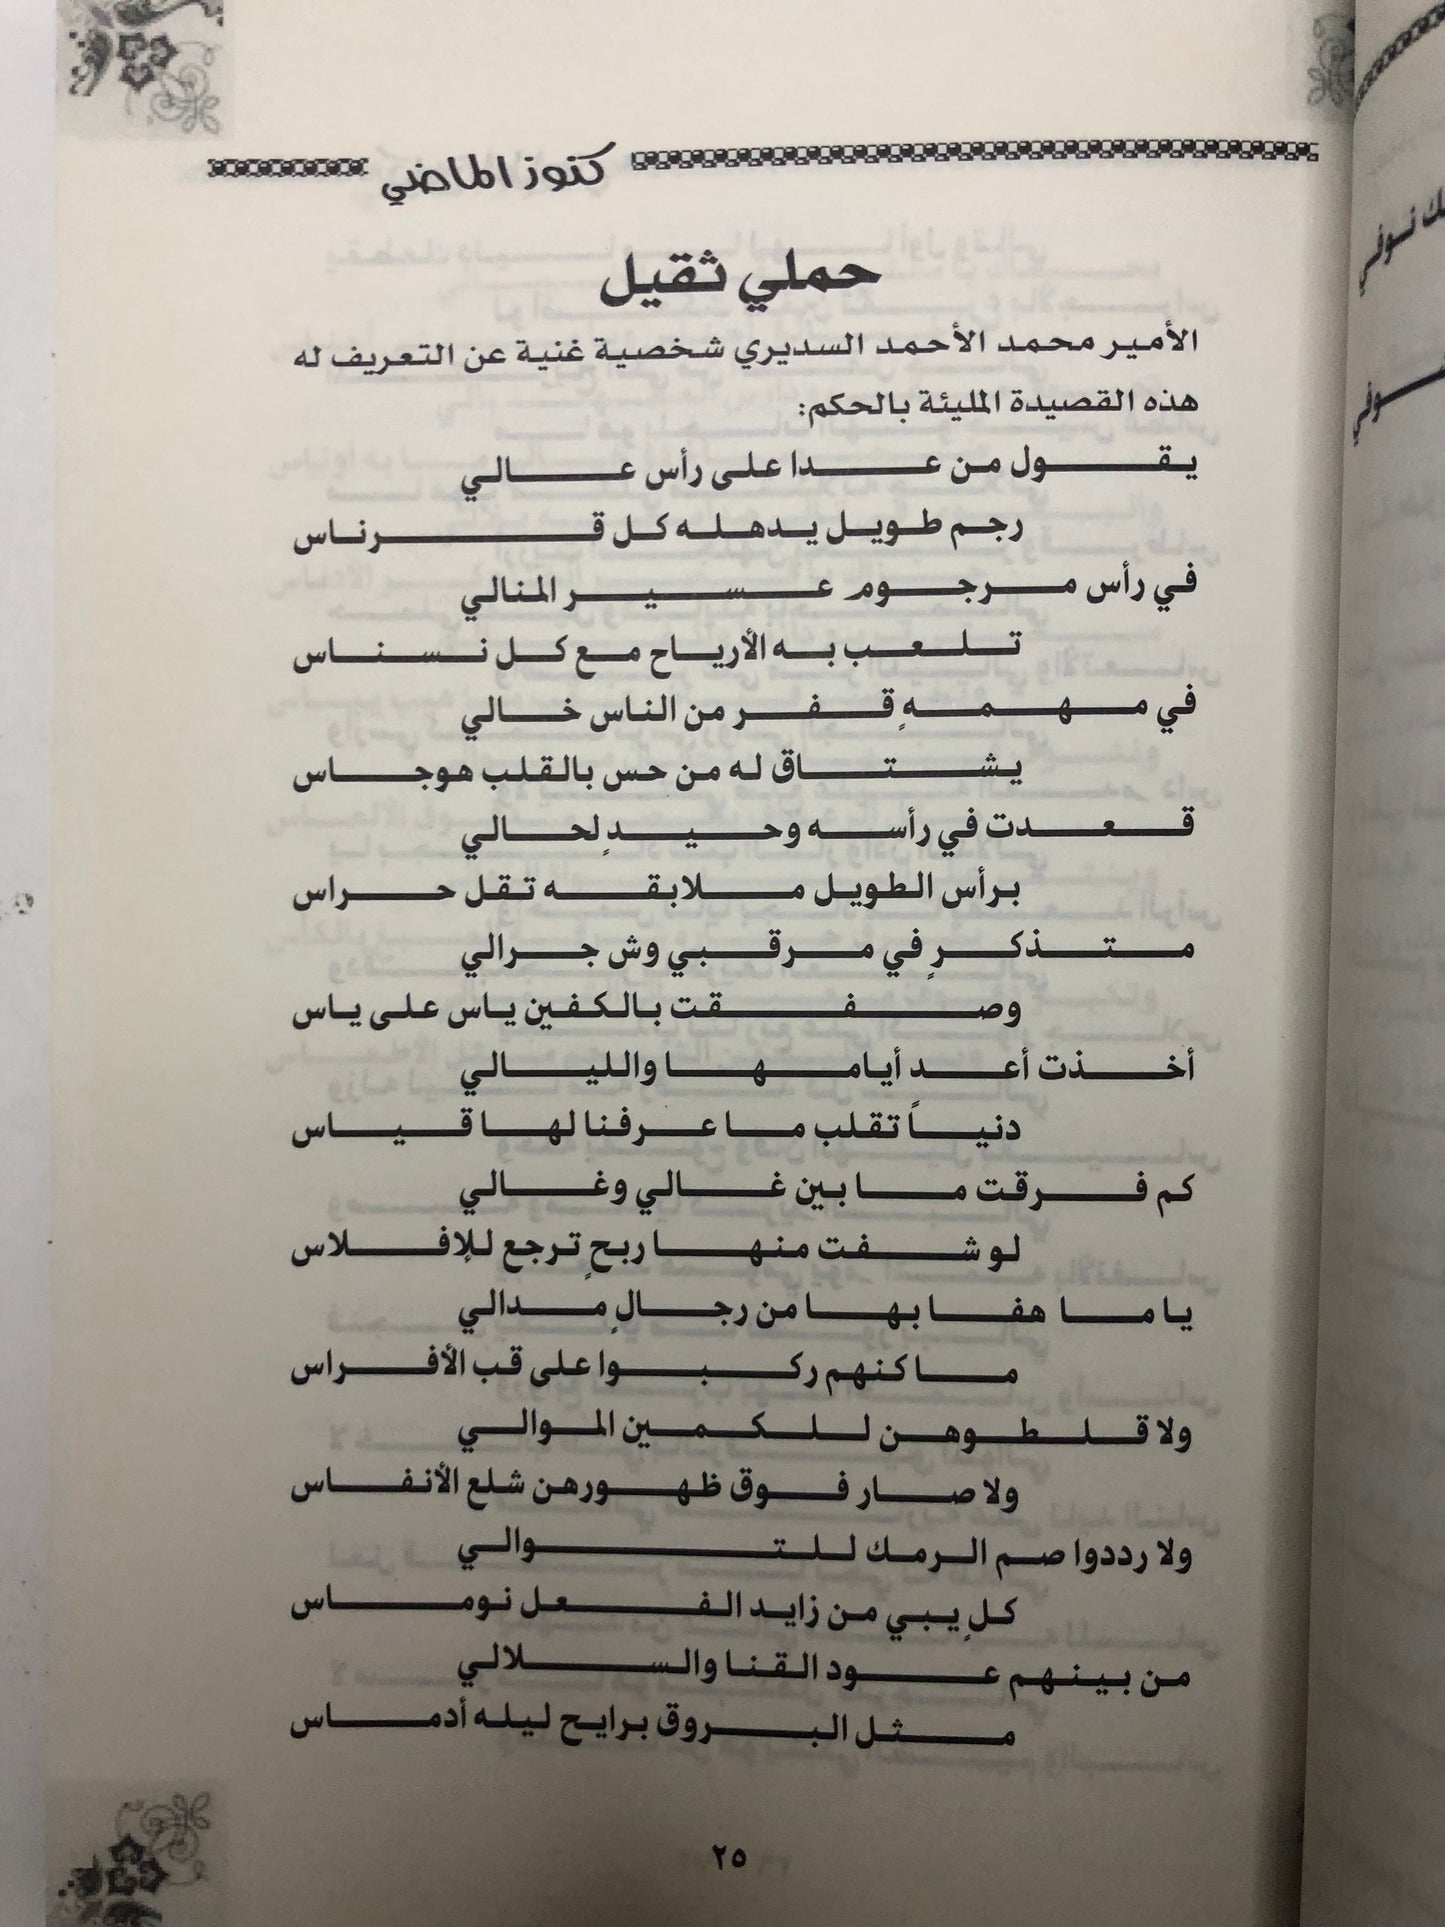 كنوز الماضي
حملي ثقيل
الأمير محمد الأحمد السديري شخصية غنية عن التعريف له
هذه القصيدة المليئة بالحكم:
يقول من عدا على رأس عالي
رجم طويل يدهله كل قرناس
في رأس مرجوم عسير المنالي
تلعب به الأرياح مع كل نسناس
في مهمهٍ قفر من الناس خالي
يشتاق له من حس بالقلب هوجاس
قعدت في رأسه وحيدٍ لحالي
برأس الطويل ملابقه تقل حراس
متذكرٍ في مرقبي وش جرالي
وصفقت بالكفين ياس على ياس
أخذت أعد أيامها والليالي
دنياً تقلب ما عرفنا لها قياس
كم فرقت ما بين غالي وغالي
لو شفت منها ربحٍ ترجع للإفلاس
يا ما هفا بها من رجالٍ مدالي
ما كنهم ركبوا على قب الأفراس
ولا قلطوهن للكمين الموالي
ولا صار فوق ظهورهن شلع الأنفاس
ولا رددوا صم الرمك للتوالي
كلٍ يبي من زايد الفعل نوماس
من بينهم عود القنا والسلالي
مثل البروق برايح ليله أدماس
٢٥